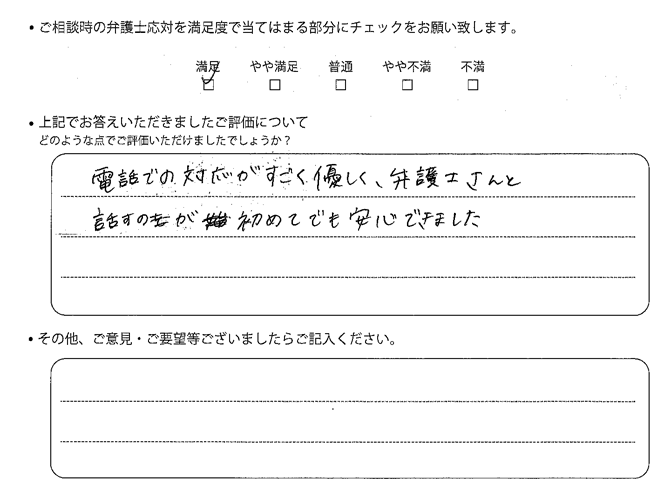 ・ご相談時の弁護士応対を満足度で当てはまる部分にチェックをお願い致します。
満足 やや満足 普通 やや不満 不満
☑ □ □ □ □
・上記でお答えいただきましたご評価について
どのような点でご評価いただけましたでしょうか？
電話での対応がすごく優しく、弁護士さんと
話すのが初めてでも安心できました
・その他、ご意見・ご要望等ございましたらご記入ください。